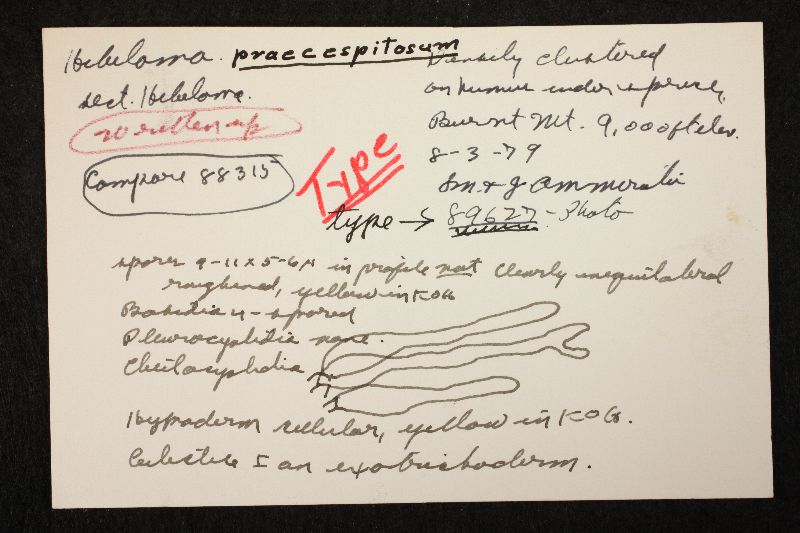 Hebeloma. praecespitosum
sect. Hebeloma.
written up
Compare 88315
Type
Densely clustered
on humus under spruce,
Burnt Mt. 9,000 ft elev.
8-3-79
Sm. & J Ammirati
type → 89627 - Photo
spores 9-11 x 5-6 µ in profile not clearly inequilateral
roughened, yellow in KOH
Basidia 4-spored
Pleurocystidia none.
Cheilocystidia
Hypoderm cellular, yellow in KOH.
Cuticle I an exotrichoderm.